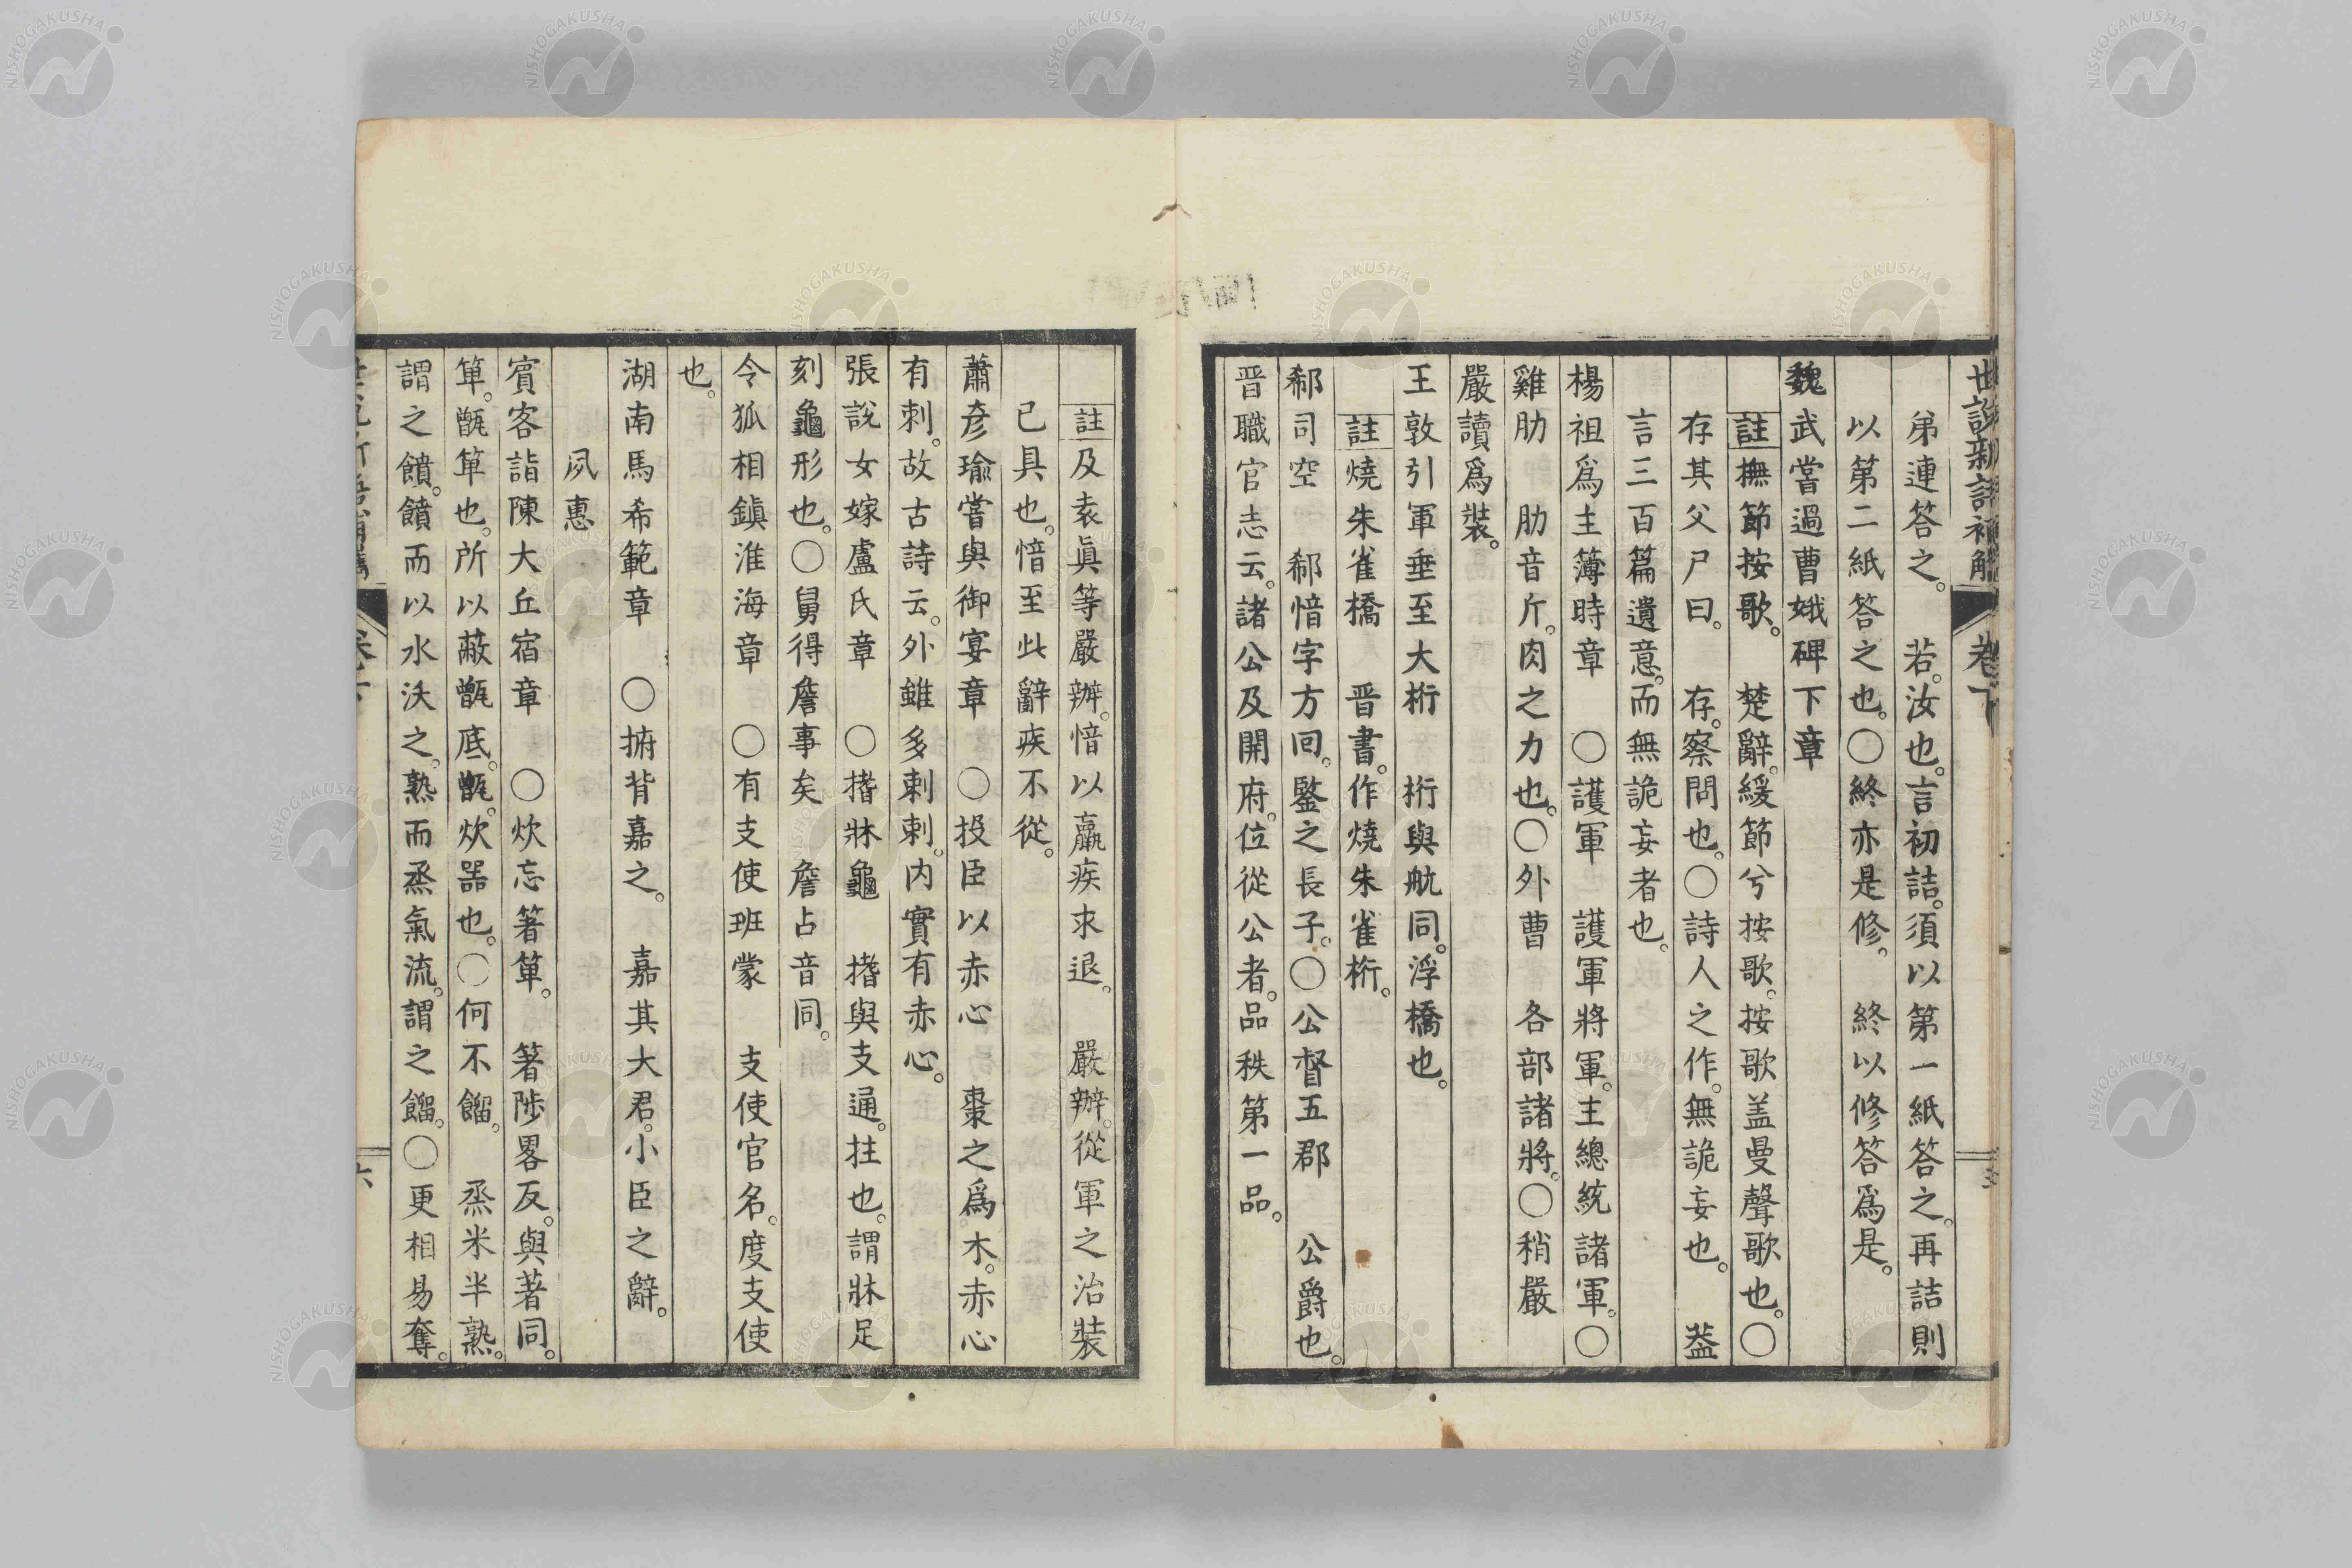 世說新語補觽 卷下
弟連答之。 若。汝也。言初詰。須以第一紙答之。再詰則
以第二紙答之也。〇終亦是修。 終以修答爲是。
魏武嘗過曹娥碑下章
註撫節按歌。 楚辭。緩節兮按歌。按歌盖曼聲歌也。〇
存其父尸曰。 存。察問也。〇詩人之作。無詭妄也。 葢
言三百篇遺意。而無詭妄者也。
楊祖爲主簿時章 〇護軍 護軍將軍。主總統諸軍。〇
雞肋 肋音斤。肉之力也。〇外曹 各部諸將。〇稍嚴
嚴讀爲裝。
王敦引軍垂至大桁 桁與航同。浮橋也。
註燒朱雀橋 晋書。作燒朱雀桁。
郗司空 郗愔字方回。鑒之長子。〇公督五郡 公爵也。
晋職官志云。諸公及開府。位從公者。品秩第一品。
註及袁眞等嚴辦。愔以羸疾求退。 嚴辦。從軍之治裝
已具也。愔至此辭疾不從。
蕭彥瑜嘗與御宴章 〇投臣以赤心 棗之爲木。赤心
有刺。故古詩云。外雖多刺刺。内實有赤心。
張說女嫁盧氏章 〇搘牀龜 搘與支通。拄也。謂牀足
刻龜形也。〇舅得詹事矣 詹占音同。
令狐相鎭淮海章 〇有支使班蒙 支使官名。度支使
也。
湖南馬希範章 〇拊背嘉之。 嘉其大君。小臣之辭。
夙惠
賓客詣陳大丘宿章 〇炊忘箸箄。 箸陟畧反。與著同。
箄。甑箄也。所以蔽甑底。甑。炊器也。〇何不餾。 烝米半熟。
謂之饙。饙而以水沃之。熟而烝氣流。謂之餾。〇更相易奪。